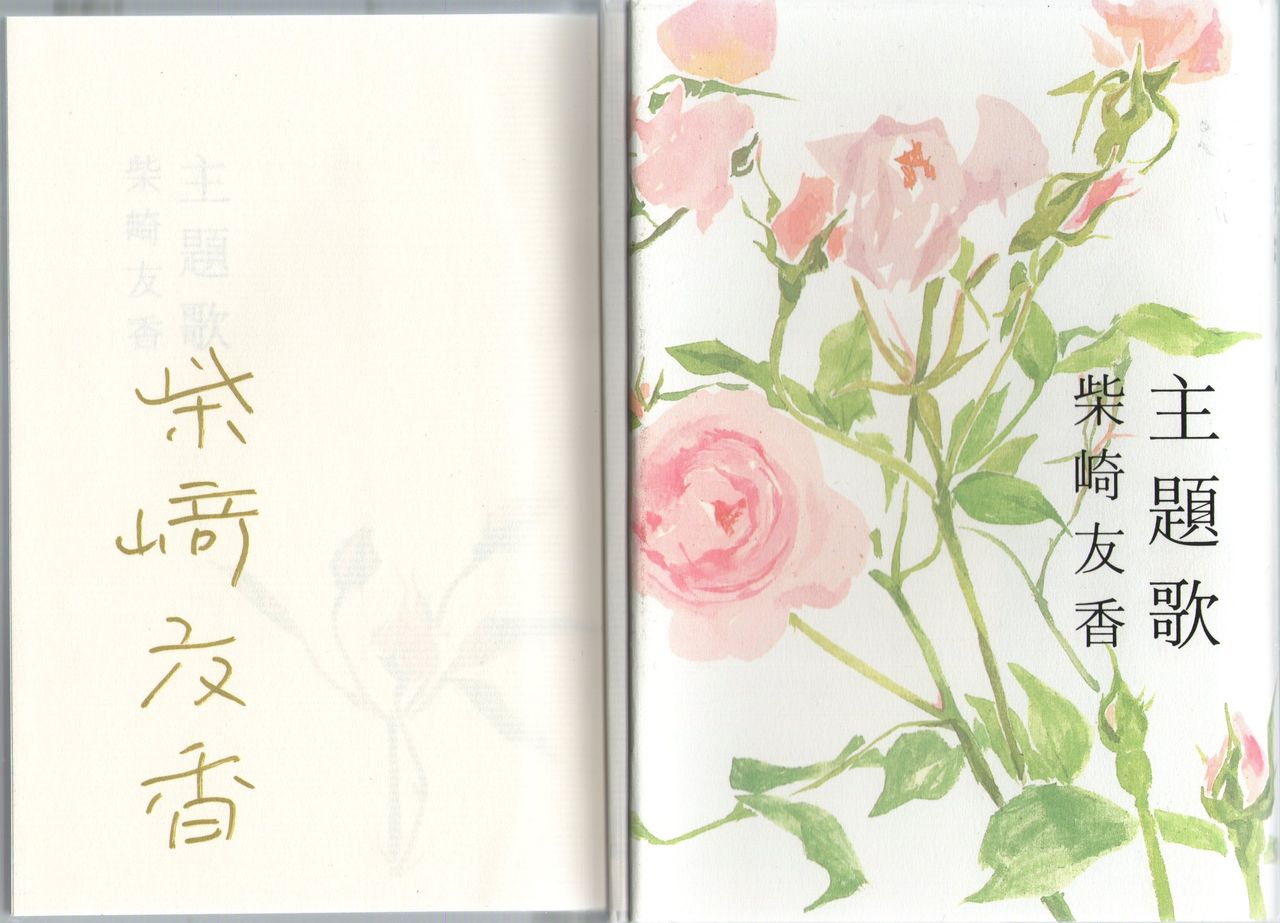 主題歌
柴崎友香
柴﨑友香
主題歌
柴崎友香